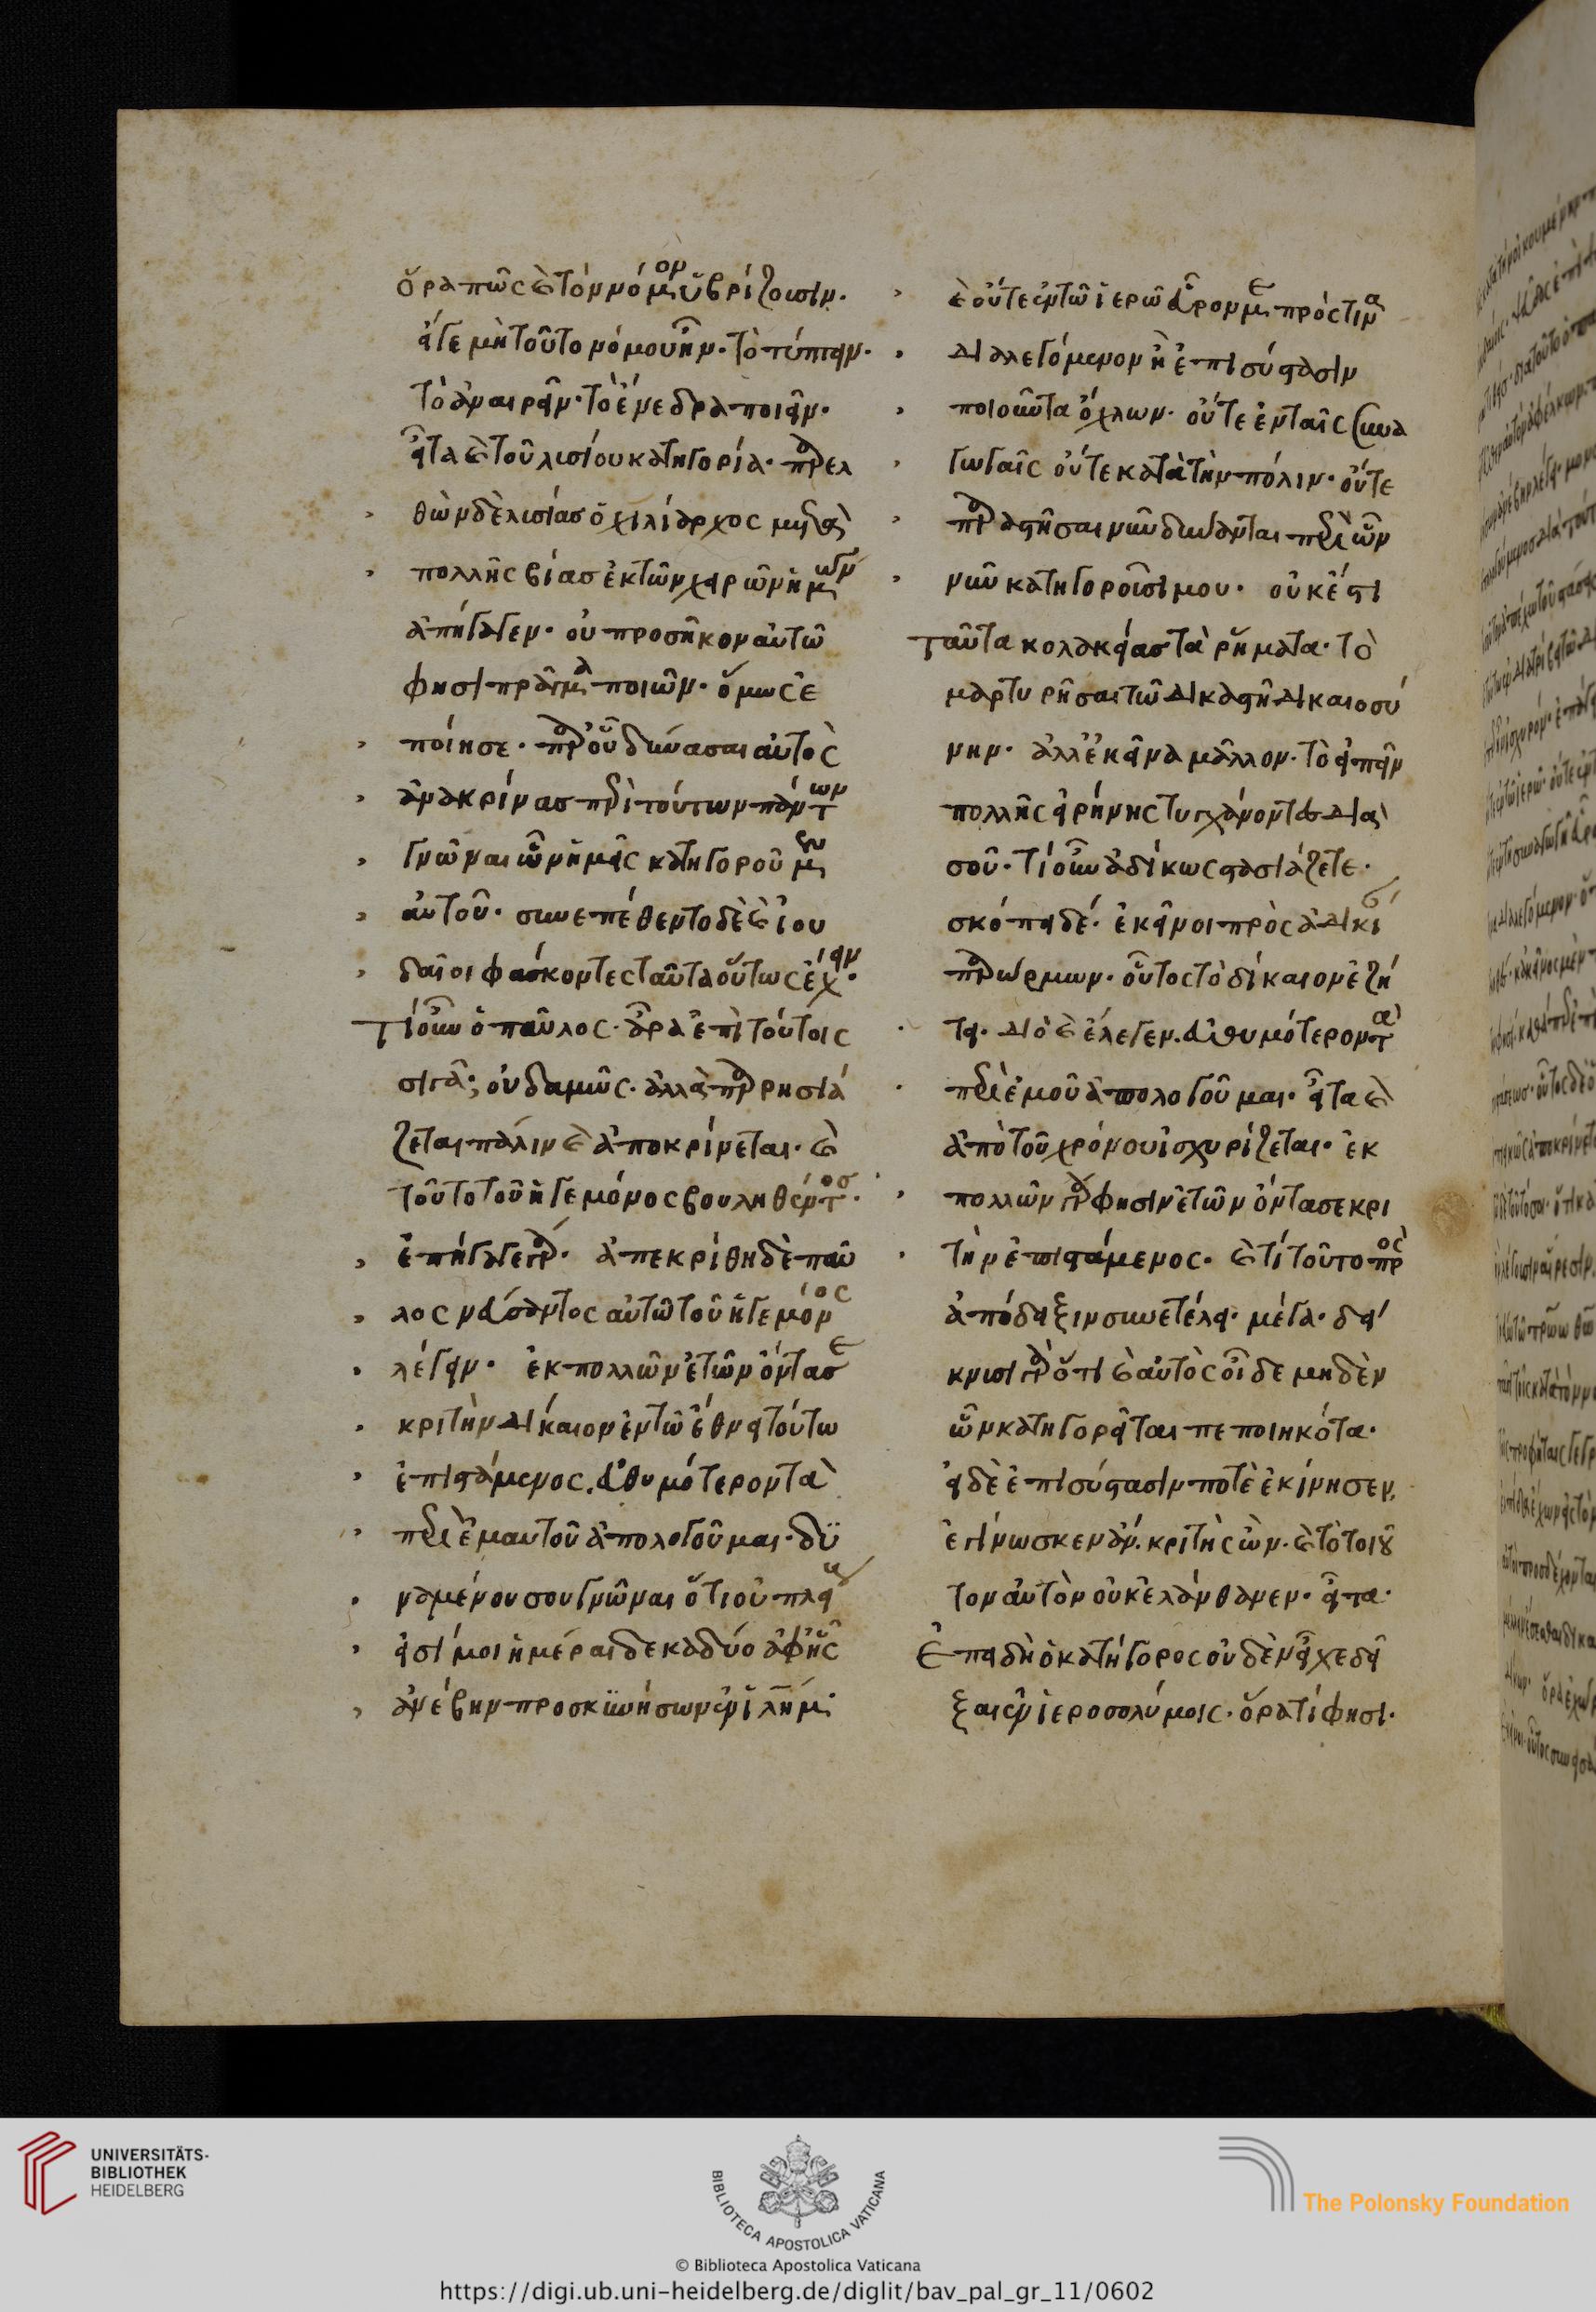 ὅρα πῶς καὶ τὸν νόμον ὑβρίζουσιν.
εἴγε μὴ τοῦτο νόμου ἦν. τὸ τύπτειν.
τὸ ἀναιρεῖν. τὸ ἔνεδρα ποιεῖν.
εἶτα καὶ τοῦ λυσίου κατηγορία. παρελ
θὼν δὲ λυσίας ὁ χιλίαρχος μετὰ
πολλῆς βίας ἐκ τῶν χειρῶν ἡμῶν
ἀπήγαγεν. οὐ προσῆκον αὐτῶ
φησὶ πρᾶγμα ποιῶν. ὅμως ἐ
ποίησε. παρ' οὗ δυνάσαι αὐτὸς
ἀνακρίνας περὶ τούτων πάντων
γνῶναι ὧν ἡμεῖς κατηγοροῦμεν
αὐτοῦ. συνεπέθεντο δὲ καὶ ἰου
δαῖοι φάσκοντες ταῦτα οὕτως ἔχειν.
τί οὖν ὁ παῦλος. ἆρα ἐπὶ τούτοις
σιγᾶ; οὐδαμῶς. ἀλλὰ παρρησιά
ζεται πάλιν καὶ ἀποκρίνεται. καὶ
τοῦτο τοῦ ἡγεμόνος βουληθέντος.
ἐπήγαγε γάρ. ἀπεκρίθη δὲ παῦ
λος νεύσαντος αὐτῶ τοῦ ἡγεμόνος
λέγειν. ἐκ πολλῶν ἐτῶν ὄντα σε
κριτὴν δίκαιον ἐν τῶ ἔθνει τούτω
ἐπιστάμενος. εὐθυμότερον τὰ
περὶ ἐμαυτοῦ ἀπολογοῦμαι. δυ
ναμένου σου γνῶναι ὅτι οὐ πλείους
εἰσί μοι ἡμέραι δεκαδύο ἀφ' ἧς
ἀνέβην προσκυνήσων ἐν ἱλήμ.
καὶ οὔτε ἐν τῶ ἱερῶ εὗρον με πρός τινα
διαλεγόμενον ἢ ἐπισύστασιν
ποιοῦντα ὄχλων. οὔτε ἐν ταῖς συνα
γωγαῖς οὔτε κατὰ τὴν πόλιν. οὔτε
παραστῆσαι νῦν δύνανται περὶ ὧν
νῦν κατηγοροῦσί μου. οὐκ ἔστι
ταῦτα κολακείας τὰ ῥήματα. τὸ
μαρτυρῆσαι τῶ δικαστῆ δικαιοσύ
νην. ἀλλ' ἐκεῖνα μᾶλλον. τὸ εἰπεῖν
πολλῆς εἰρήνης τυγχάνοντες διὰ
σοῦ. τί οὖν ἀδίκως στασιάζετε.
σκόπει δέ. ἐκεῖνοι πρὸς ἀδικίαν
παρώρμων. οὗτος τὸ δίκαιον ἐζή
τει. διὸ καὶ ἔλεγεν. εὐθυμότερον τὰ
περὶ ἐμοῦ ἀπολογοῦμαι. εἶτα καὶ
ἀπὸ τοῦ χρόνου ἰσχυρίζεται. ἐκ
πολλῶν γάρ φησιν ἐτῶν ὄντα σε κρι
τὴν ἐπιστάμενος. καὶ τί τοῦτο πρὸς
ἀπόδειξιν συνετέλει. μέγα. δεί
κνυσι γὰρ ὅτι καὶ αὐτὸς οἶδε μηδὲν
ὧν κατηγορεῖται πεποιηκότα.
εἰ δὲ ἐπισύστασίν ποτε ἐκίνησεν,
ἐγίνωσκεν ἄν. κριτὴς ὤν. καὶ τὸ τοιοῦ
τον αὐτὸν οὐκ ἐλάνθανεν. εἶτα.
ἐπειδὴ ὁ κατήγορος οὐδὲν εἶχε δεῖ
ξαι ἐν ἱεροσολύμοις. ὅρα τί φησι.
UNIVERSITÄTS-
BIBLIOTHEK
HEIDELBERG
BIBLIOTECA APOSTOLICA VATICANA
The Polonsky Foundation
© Biblioteca Apostolica Vaticana
https://digi.ub.uni-heidelberg.de/diglit/bav_pal_gr_11/0602